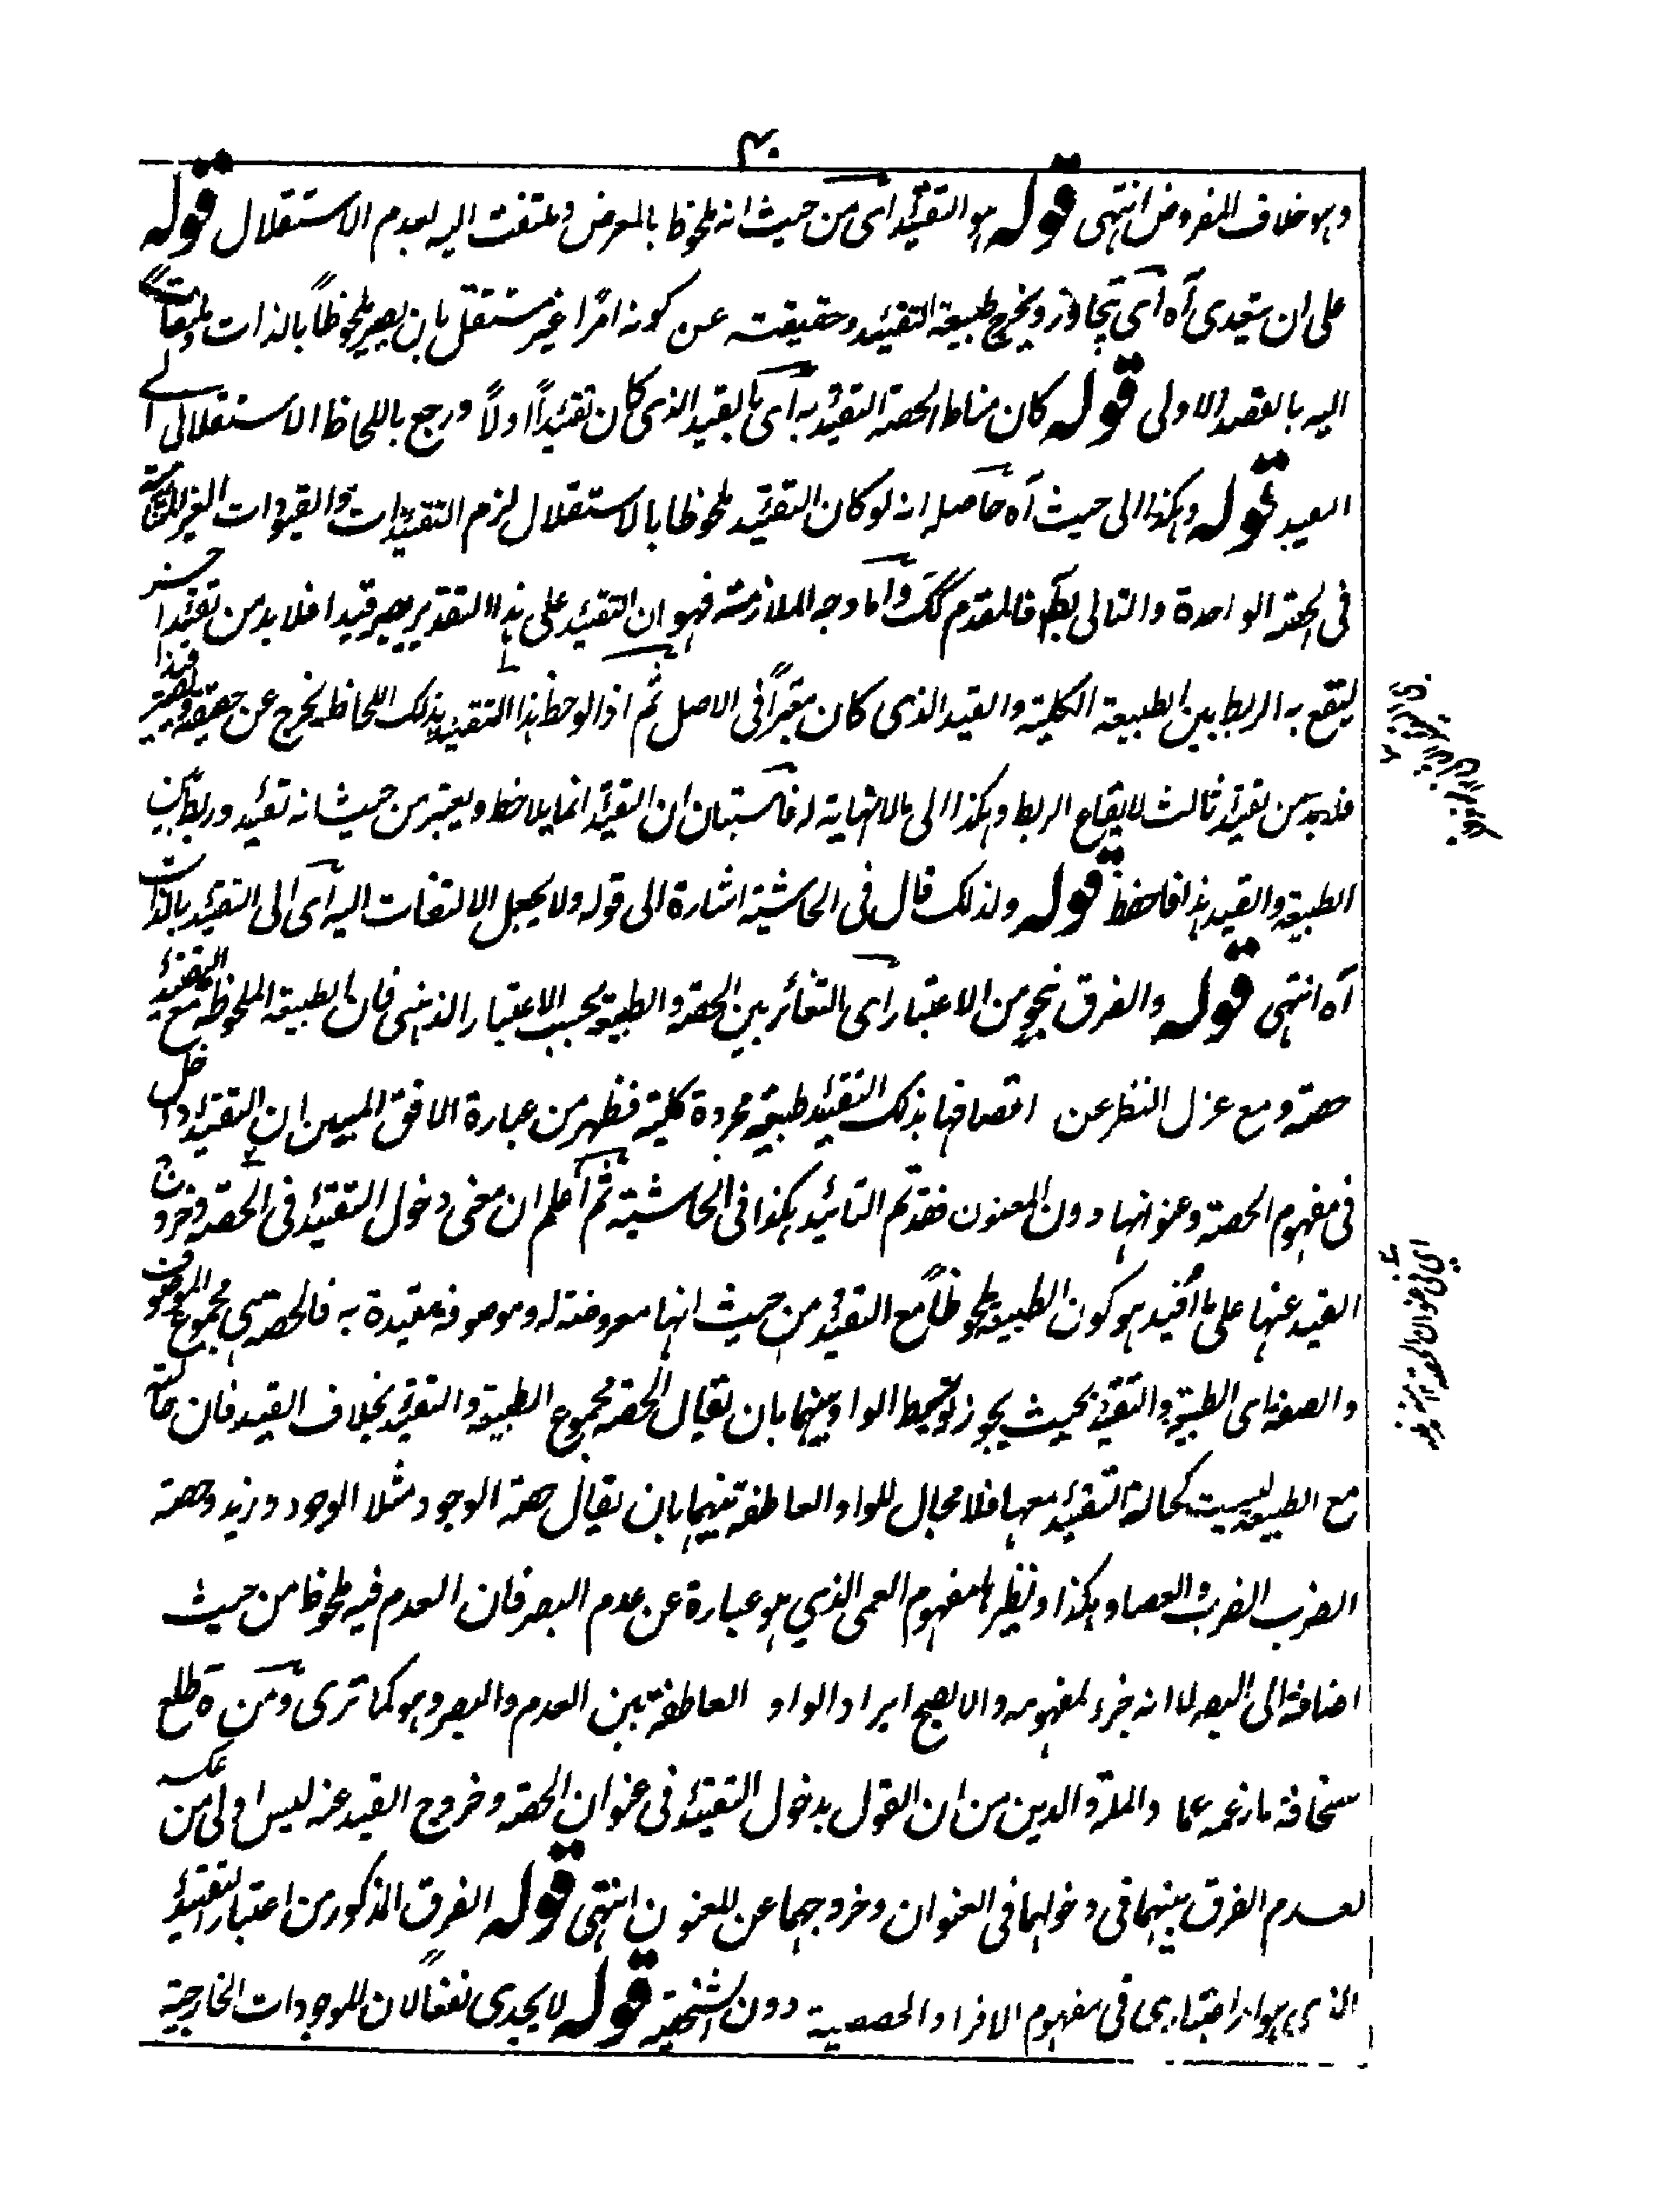 ٣٠
وهو خلاف المفروض انتهى قوله هو التقييد اى من حيث انه ملحوظا بالعرض وملتفت اليه لعدم الاستقلال قوله
على ان يتعدى آه اى يتجاوز ويخرج طبيعة التقييد وحقيقته عن كونه امرًا غير مستقل بان يصير ملحوظاً بالذات وملتفتاً
اليه بالقصد الاولى قوله كان مناط الحصة التقييد به اى بالقيد الذى كان تقييداً اولاً ورجع باللحاظ الاستقلالى الى
القيد قوله وهكذا الى حيث آه حاصله انه لو كان التقييد ملحوظا بالاستقلال لزم التقييدات والقيودات الغير المتناهية
فى الحصة الواحدة والتالى بط فالمقدم كك واما وجه الملازمة فهو ان التقييد على هذا التقدير يصير قيدا فلا بد من تقييد آخر
ليقع به الربط بين الطبيعة الكلية والقيد الذى كان معتبراً فى الاصل ثم اذا لوحظ هذا التقييد بذلك اللحاظ يخرج عن حقيقته ويصير قيدا
فلابد من تقييد ثالث لايقاع الربط وهكذا الى مالانهاية له فاستبان ان التقييد انما يلاحظ ويعتبر من حيث انه تقييد وربط بين
الطبيعة والقيد هذا فاحفظ قوله ولذلك قال فى الحاشية اشارة الى قوله ولا يجعل الالتفات اليه اى الى التقييد بالذات
آه انتهى قوله والفرق بنحو من الاعتبار اى التغائر بين الحصة والطبيعة بحسب الاعتبار الذهنى فان الطبيعة الملحوظة مع التقييد
حصة ومع عزل النظر عن اتصافها بذلك التقييد طبيعة مجردة كلية فظهر من عبارة الافق المبين ان التقييد داخل
فى مفهوم الحصة وعنوانها دون المعنون فقد تم التائيد هكذا فى الحاشية ثم اعلم ان معنى دخول التقييد فى الحصة وخروج
القيد عنها على ما افيد هو كون الطبيعة ملحوظاً مع التقييد من حيث انها معروضة له وموصوفة مقيدة به فالحصة هى مجموع الموصوف
والصفة اى الطبيعة والتقييد بحيث يجوز توسيط الواو بينهما بان يقال الحصة مجموع الطبيعة والتقييد بخلاف القيد فان حالته
مع الطبيعة ليست كحالة التقييد معها فلا مجال للواو العاطفة بينهما بان يقال حصة الوجود مثلا الوجود وزيد وحصة
الضرب الضرب والعصا وهكذا ونظيرها مفهوم العمى الذي هو عبارة عن عدم البصر فان العدم فيه ملحوظا من حيث
اضافة الى البصر لا انه جزء لمفهومه والا لصح ايراد الواو العاطفة بين العدم والبصر وهو كما ترى ومن ه تطلع
سخافة ما زعمه عماد الملة والدين من ان القول بدخول التقييد فى عنوان الحصة وخروج القيد عنه ليس اولى من عكسه
لعدم الفرق بينهما فى دخولهما فى العنوان وخروجهما عن المعنون انتهى قوله الفرق المذكور من اعتبار التقييد
الذى هو امر اعتبارى فى مفهوم الافراد الحصصية دون الشخصية قوله لا يجدى نفعًا لان للموجودات الخارجية